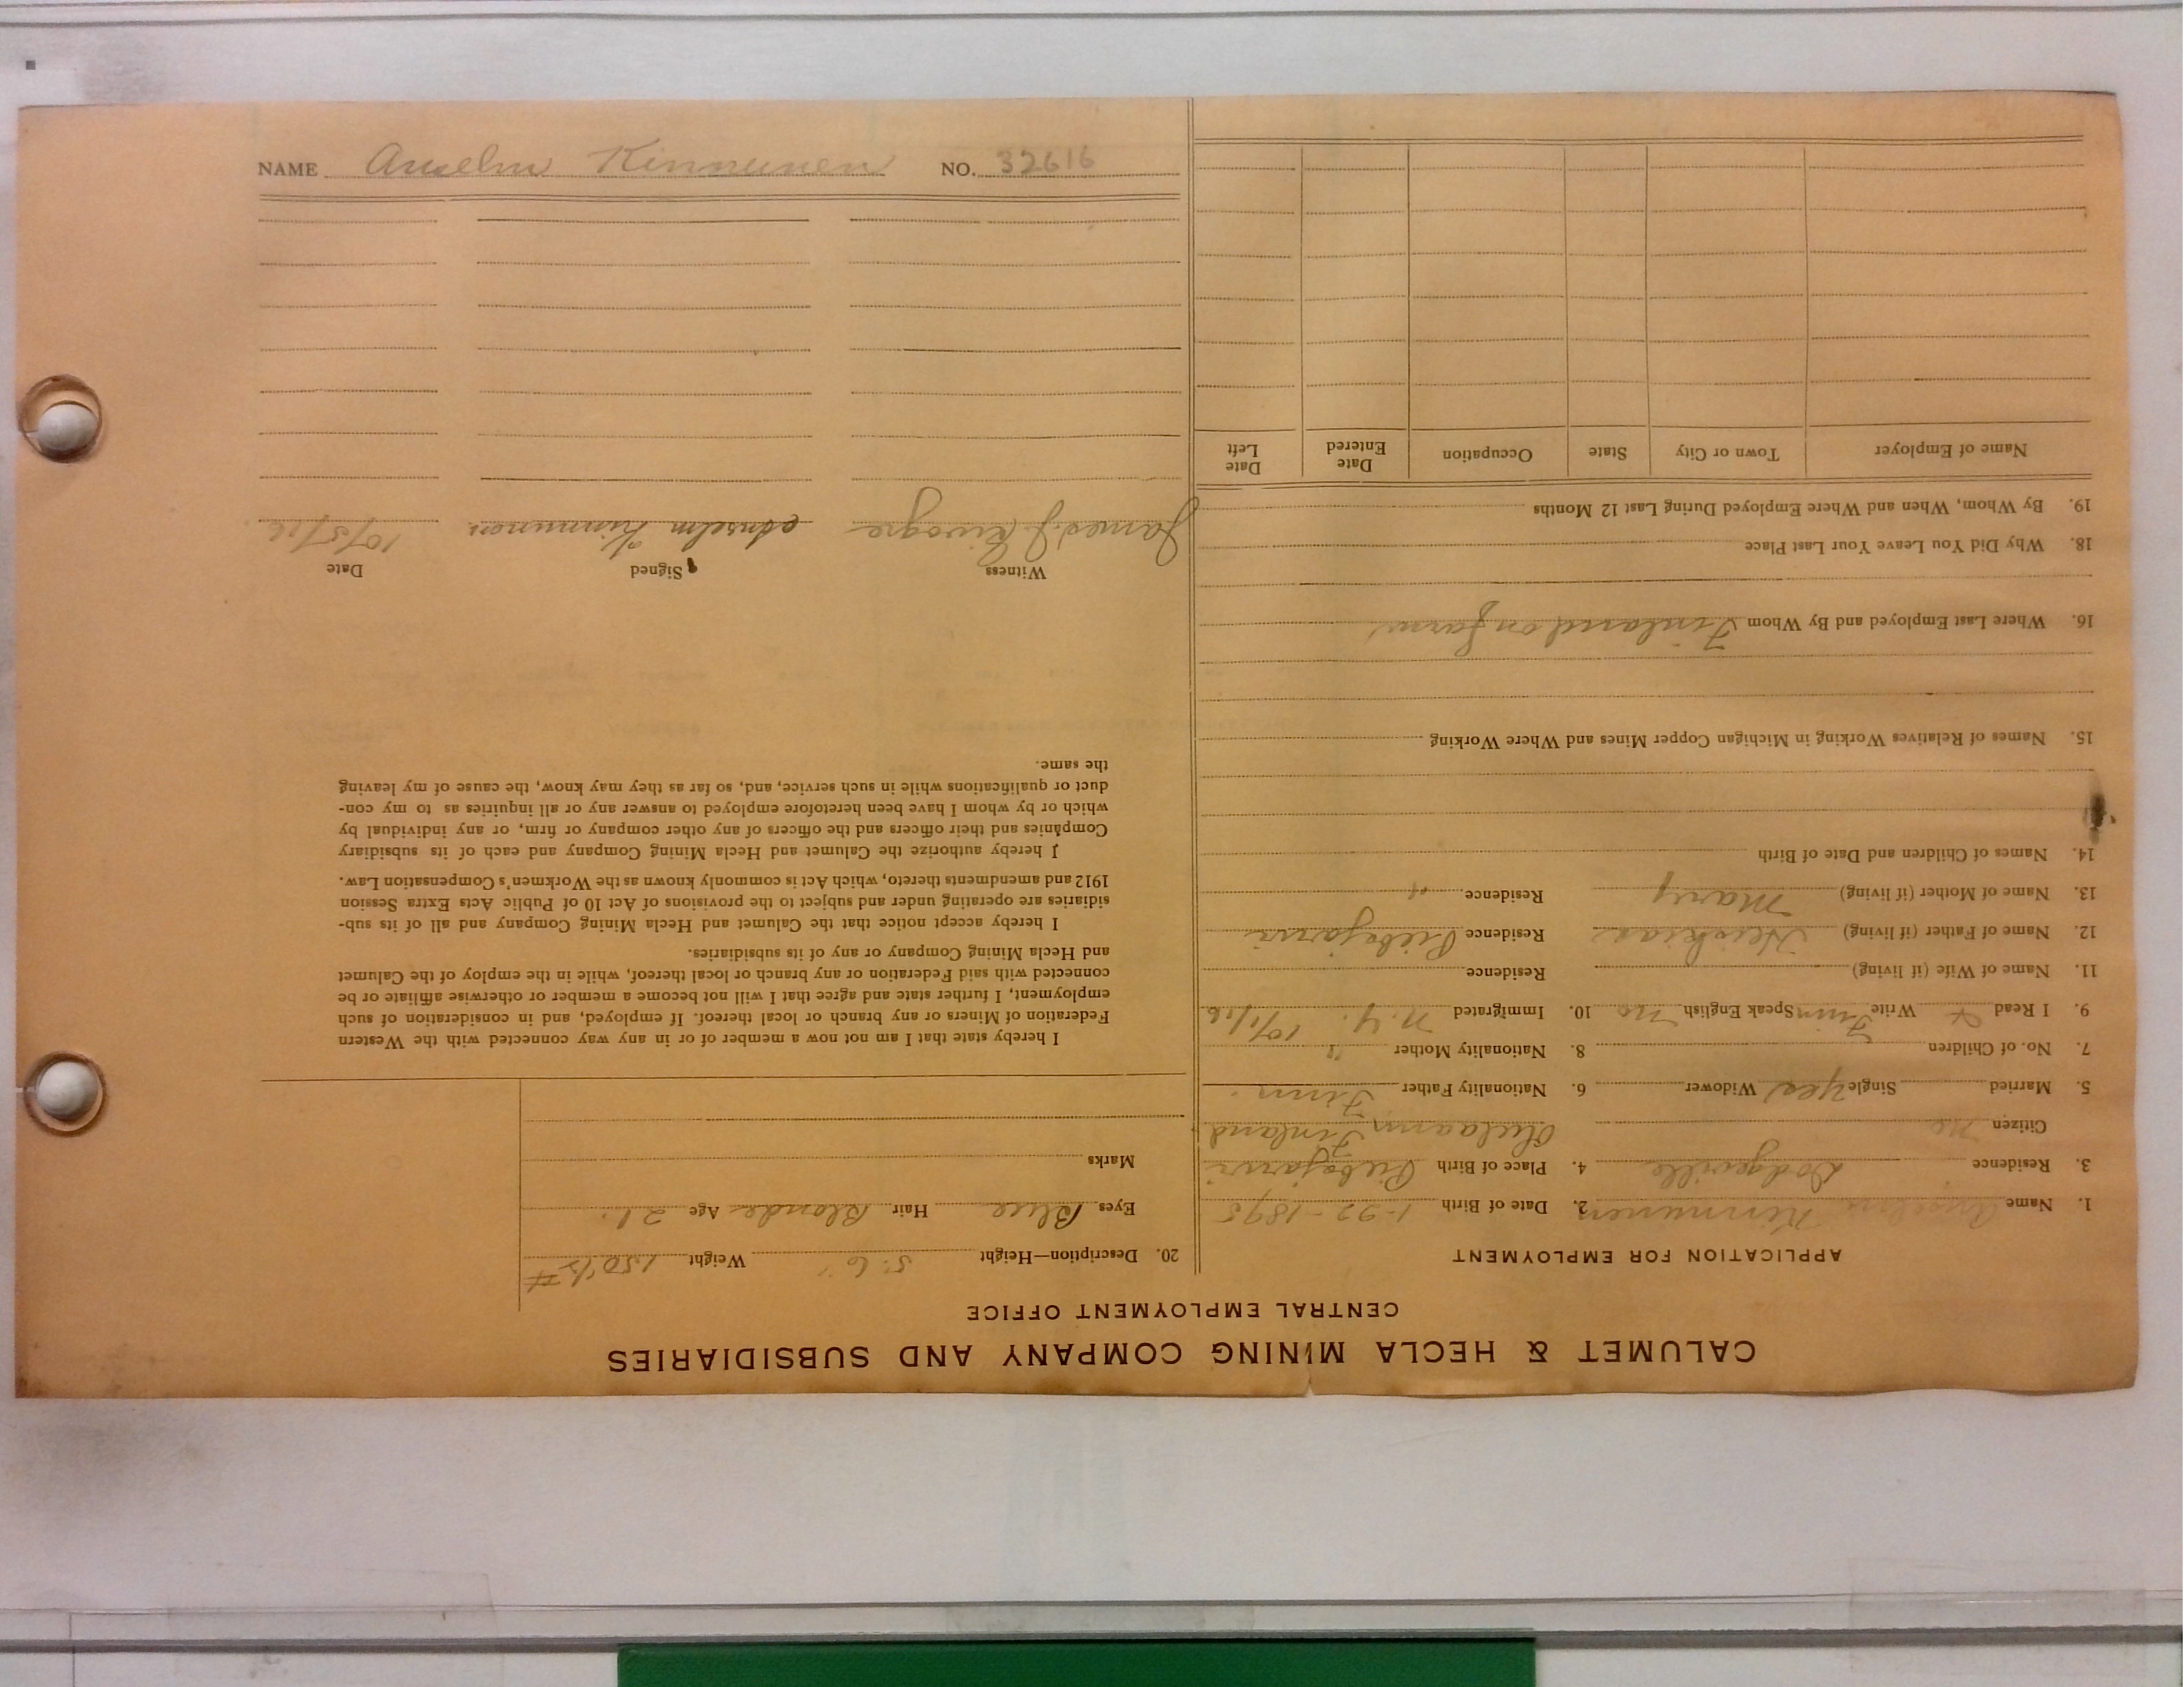 CALUMET & HECLA MINING COMPANY AND SUBSIDIARIES
CENTRAL EMPLOYMENT OFFICE
APPLICATION FOR EMPLOYMENT
1. Name Anselm Kinnunen 2. Date of Birth 1-22-1895
3. Residence Dodgeville 4. Place of Birth
Citizen no Finland
5. Married Single Yes Widower 6. Nationality Father Finn
7. No. of Children 8. Nationality Mother "
9. I Read Write Finn Speak English no 10. Immigrated N.Y. 10/1/16
11. Name of Wife (if living) Residence
12. Name of Father (if living) Residence
13. Name of Mother (if living) Mary Residence "
14. Names of Children and Date of Birth
15. Names of Relatives Working in Michigan Copper Mines and Where Working
16. Where Last Employed and By Whom Finland on farm
18. Why Did You Leave Your Last Place
19. By Whom, When and Where Employed During Last 12 Months
Name of Employer Town or City State Occupation Date Entered Date Left
20. Description—Height 5' 6" Weight 150 lbs #
Eyes Blue Hair Blonde Age 21.
Marks
I hereby state that I am not now a member of or in any way connected with the Western
Federation of Miners or any branch or local thereof. If employed, and in consideration of such
employment, I further state and agree that I will not become a member or otherwise affiliate or be
connected with said Federation or any branch or local thereof, while in the employ of the Calumet
and Hecla Mining Company or any of its subsidiaries.
I hereby accept notice that the Calumet and Hecla Mining Company and all of its sub-
sidiaries are operating under and subject to the provisions of Act 10 of Public Acts Extra Session
1912 and amendments thereto, which Act is commonly known as the Workmen's Compensation Law.
I hereby authorize the Calumet and Hecla Mining Company and each of its subsidiary
Companies and their officers and the officers of any other company or firm, or any individual by
which or by whom I have been heretofore employed to answer any or all inquiries as to my con-
duct or qualifications while in such service, and, so far as they may know, the cause of my leaving
the same.
Witness Signed Date
James J. Anselm Kinnunen 10/5/16
NAME Anselm Kinnunen NO. 32616